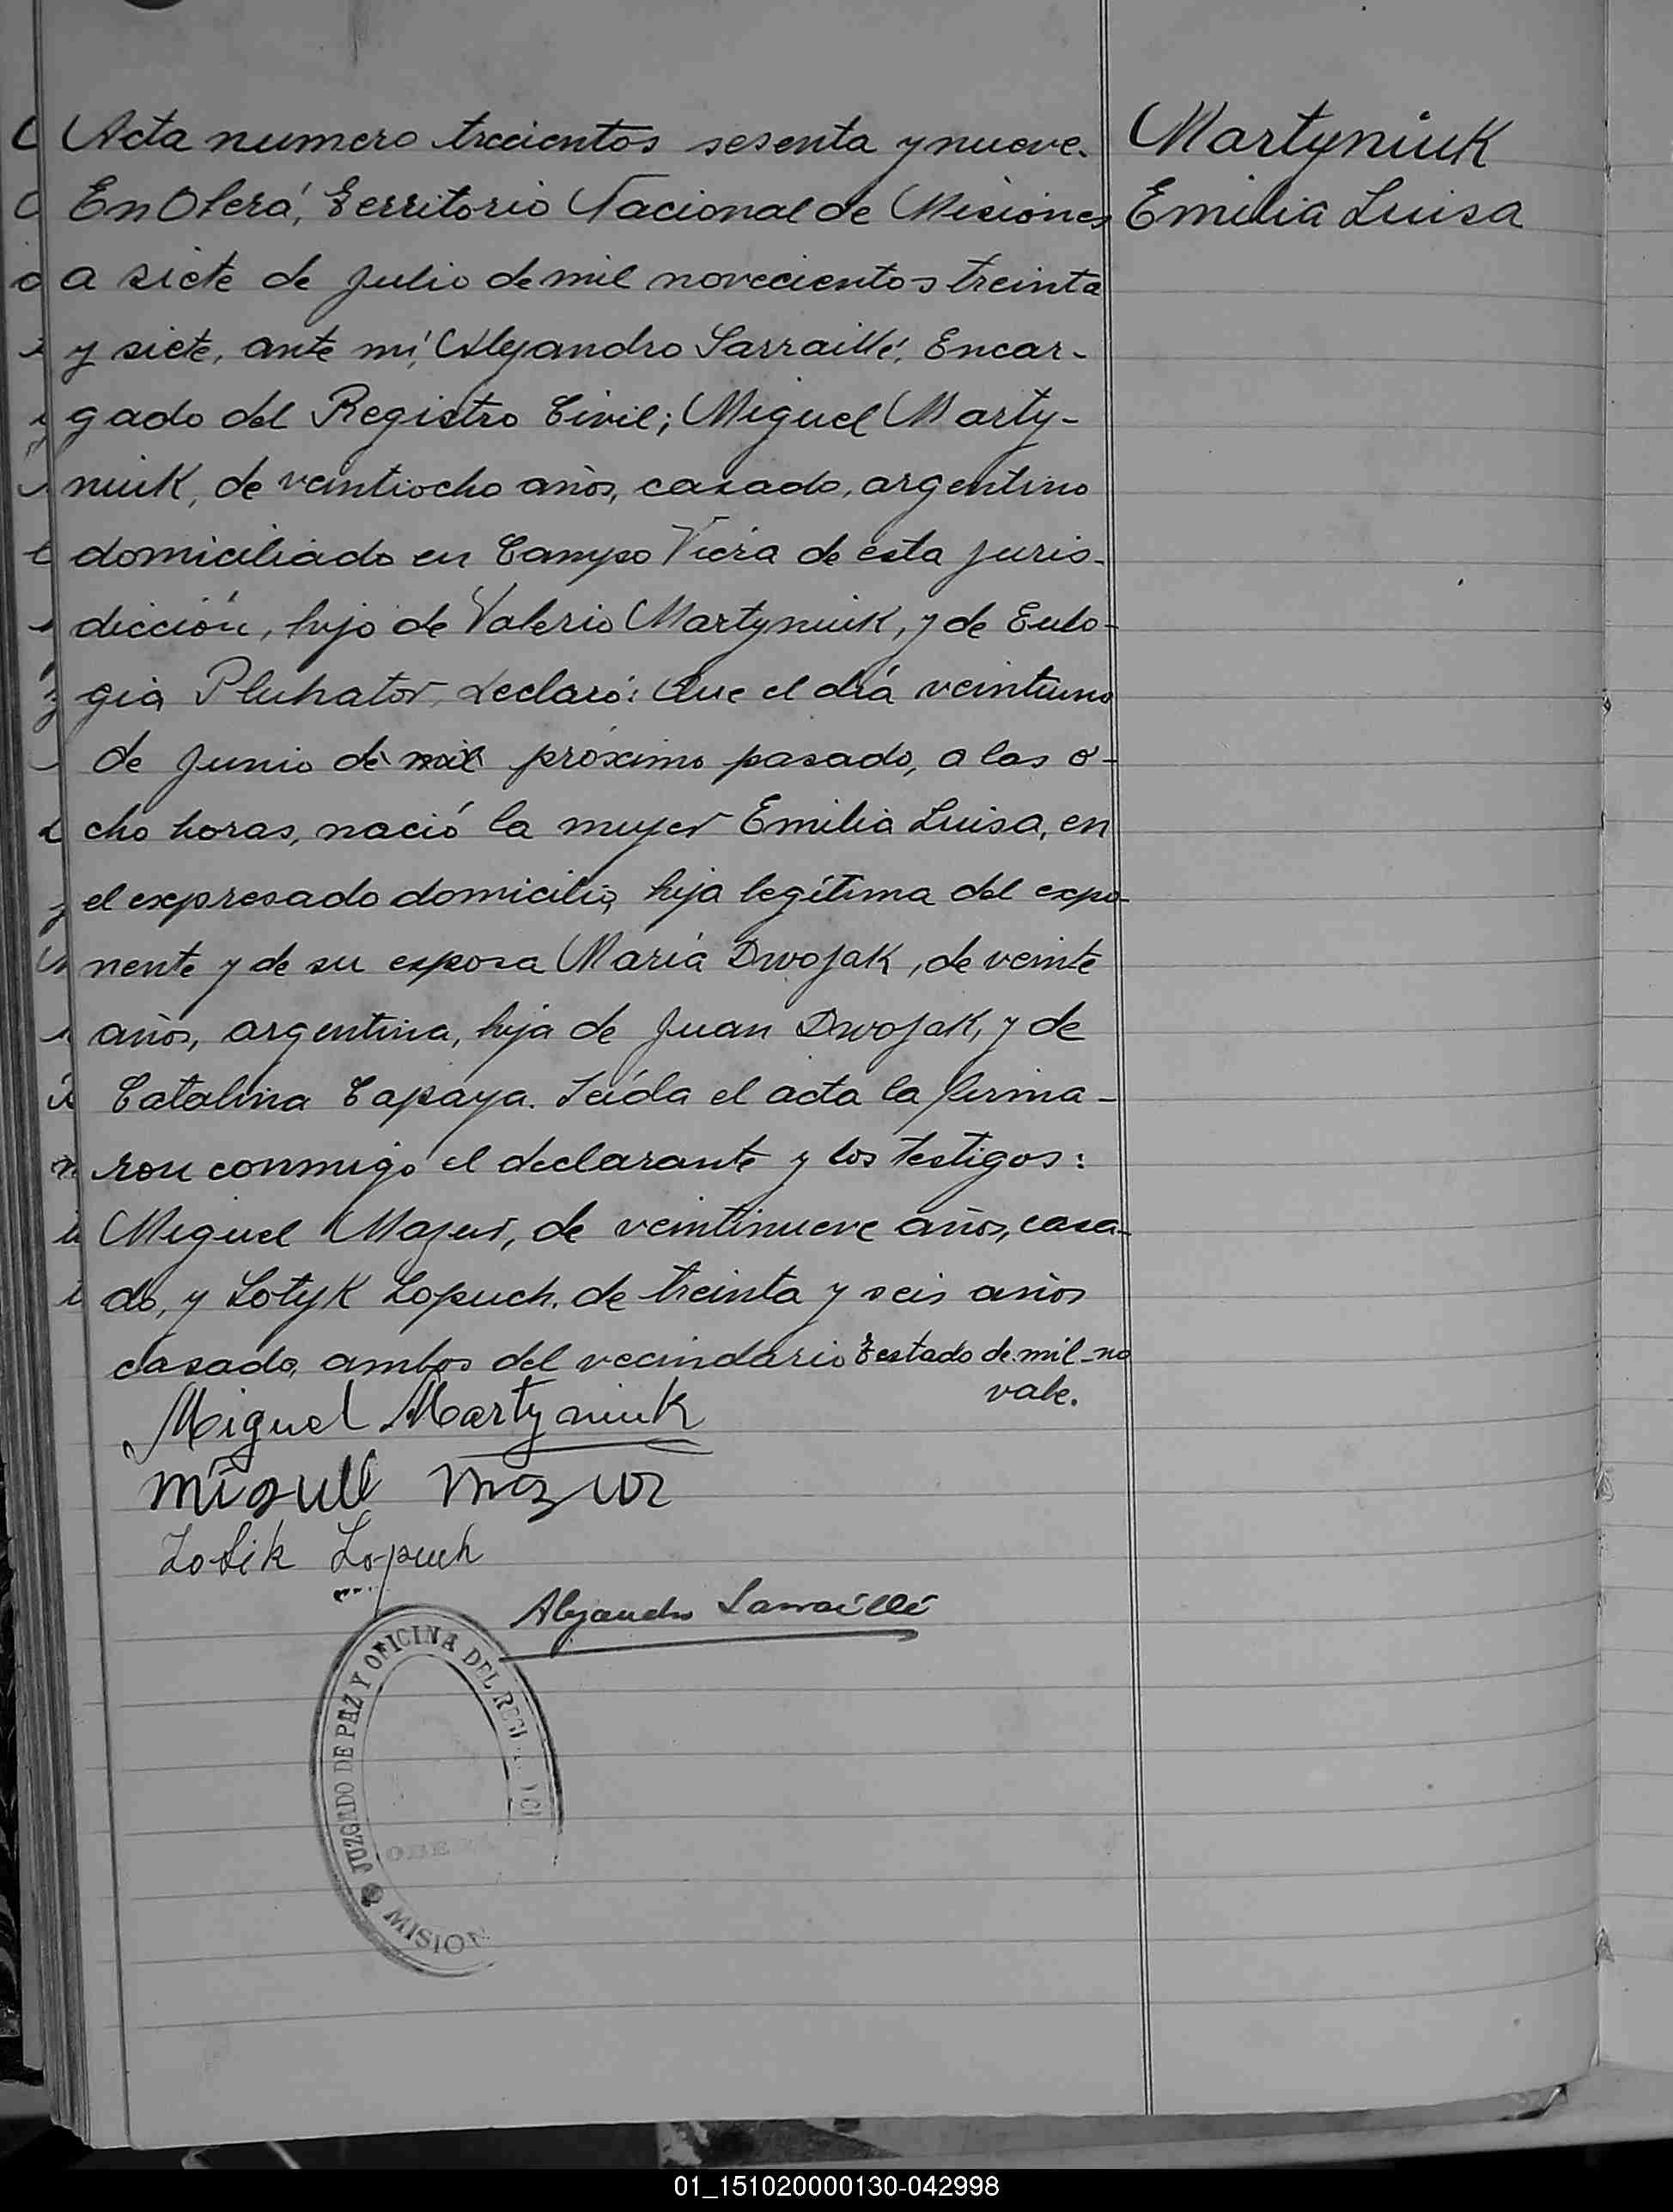 Acta numero trecientos sesenta y nueve.
En Oberá, Territorio Nacional de Misiones
a siete de Julio de mil novecientos treinta
y siete, ante mí, Alejandro Sarraillé, Encar-
gado del Registro Civil; Miguel Marty-
niuk, de veintiocho años, casado, argentino
domiciliado en Campo Viera de esta juris-
dicción, hijo de Valerio Martyniuk, y de Eulo-
gia Pluhator, declaró: Que el día veintiuno
de Junio de mil próximo pasado, a las o-
cho horas, nació la mujer Emilia Luisa, en
el expresado domicilio, hija legítima del expo-
nente y de su esposa María Dwojak, de veinte
años, argentina, hija de Juan Dwojak, y de
Catalina Capaya. Leída el acta la firma-
ron conmigo el declarante y los testigos:
Miguel Mazur, de veintinueve años, casa-
do, y Lotyk Lopuch, de treinta y seis años
casado, ambos del vecindario Testado de mil-no
vale.
Miguel Martyniuk
Miguel Mazur
Lopuch
Alejandro Sarraillé
JUZGADO DE PAZ Y OFICINA DEL
Martyniuk
Emilia Luisa
01_151020000130-042998